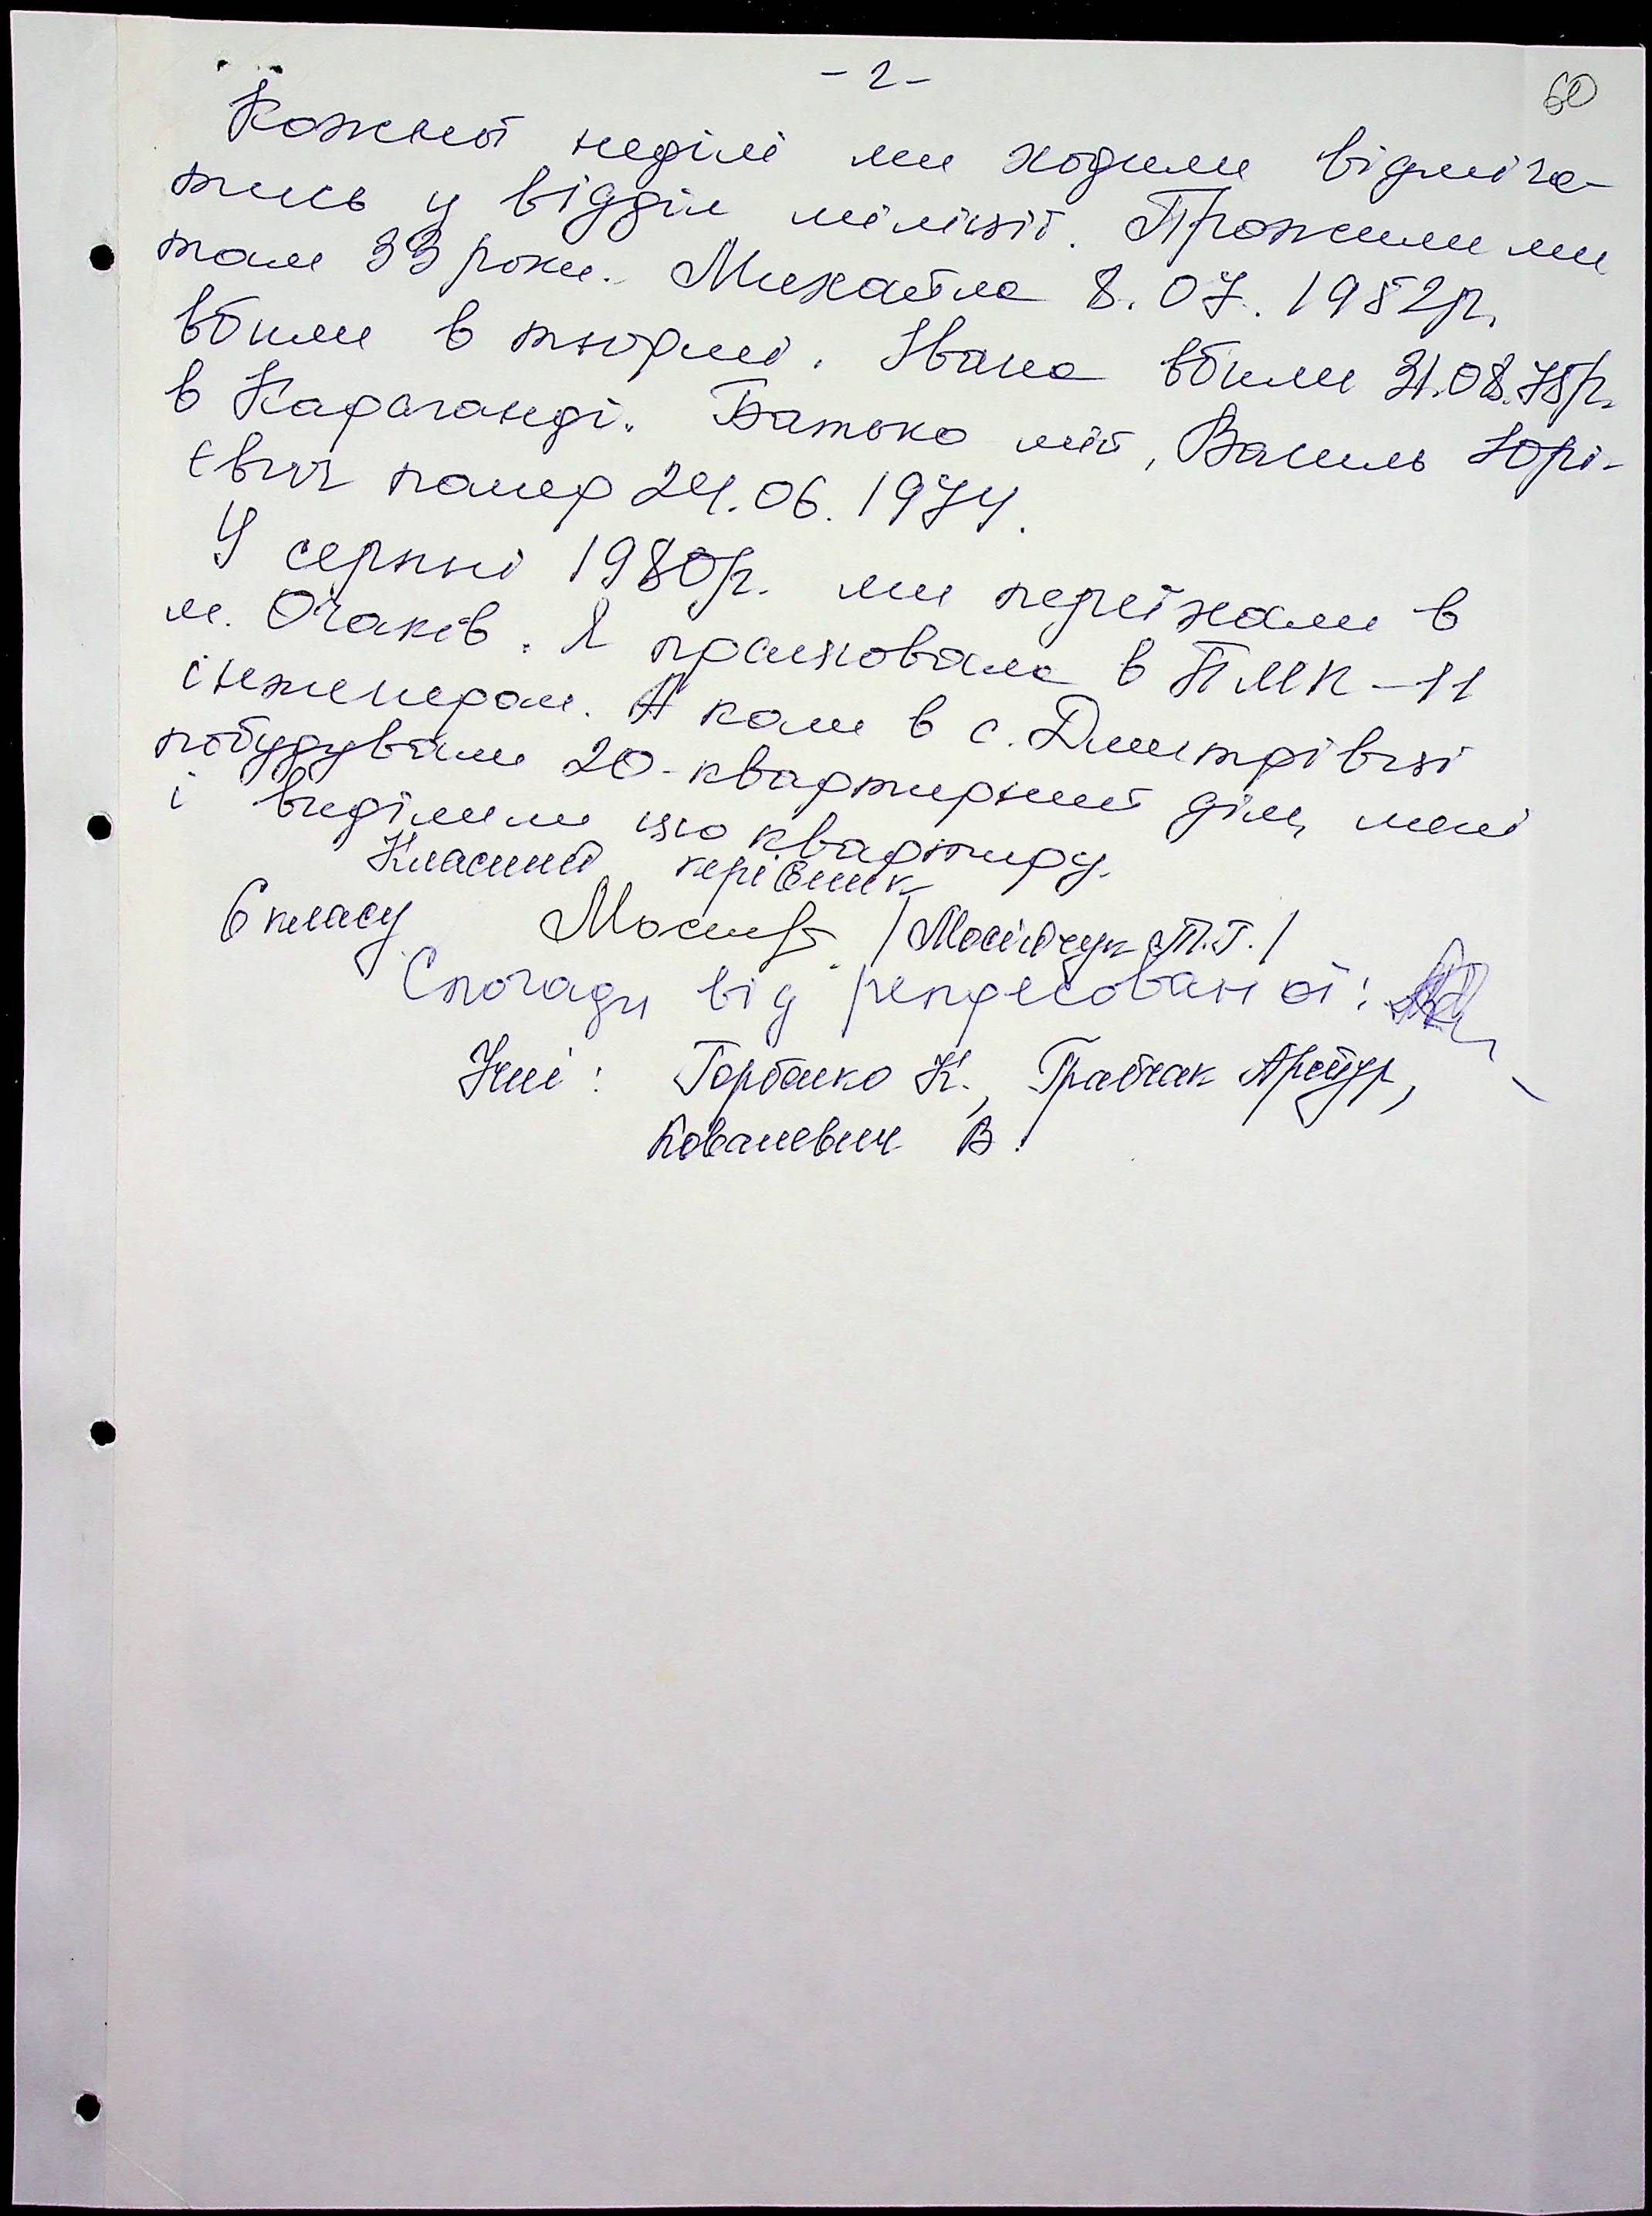 - 2 -
60
Кожної неділі ми ходили відміча-
тись у відділ міліції. Прожили ми
там 33 роки. Михайла 8.07.1952р.
вбили в тюрмі. Івана вбили 31.08.75р.
в Караганді. Батько мій, Василь Юрі-
євич помер 24.06.1974.
У серпні 1980р. ми переїхали в
м. Очаків. Я працювала в ПМК-11
інженером. А коли в с. Дмитрівці
побудували 20-квартирний дім, мені
і виділили цю квартиру.
Класний керівник
6 класу /Мосійчук Т.Г./
Спогади від репресованої:
Учні: Горбанко К., Грабчак Артур,
Ковалевич В.